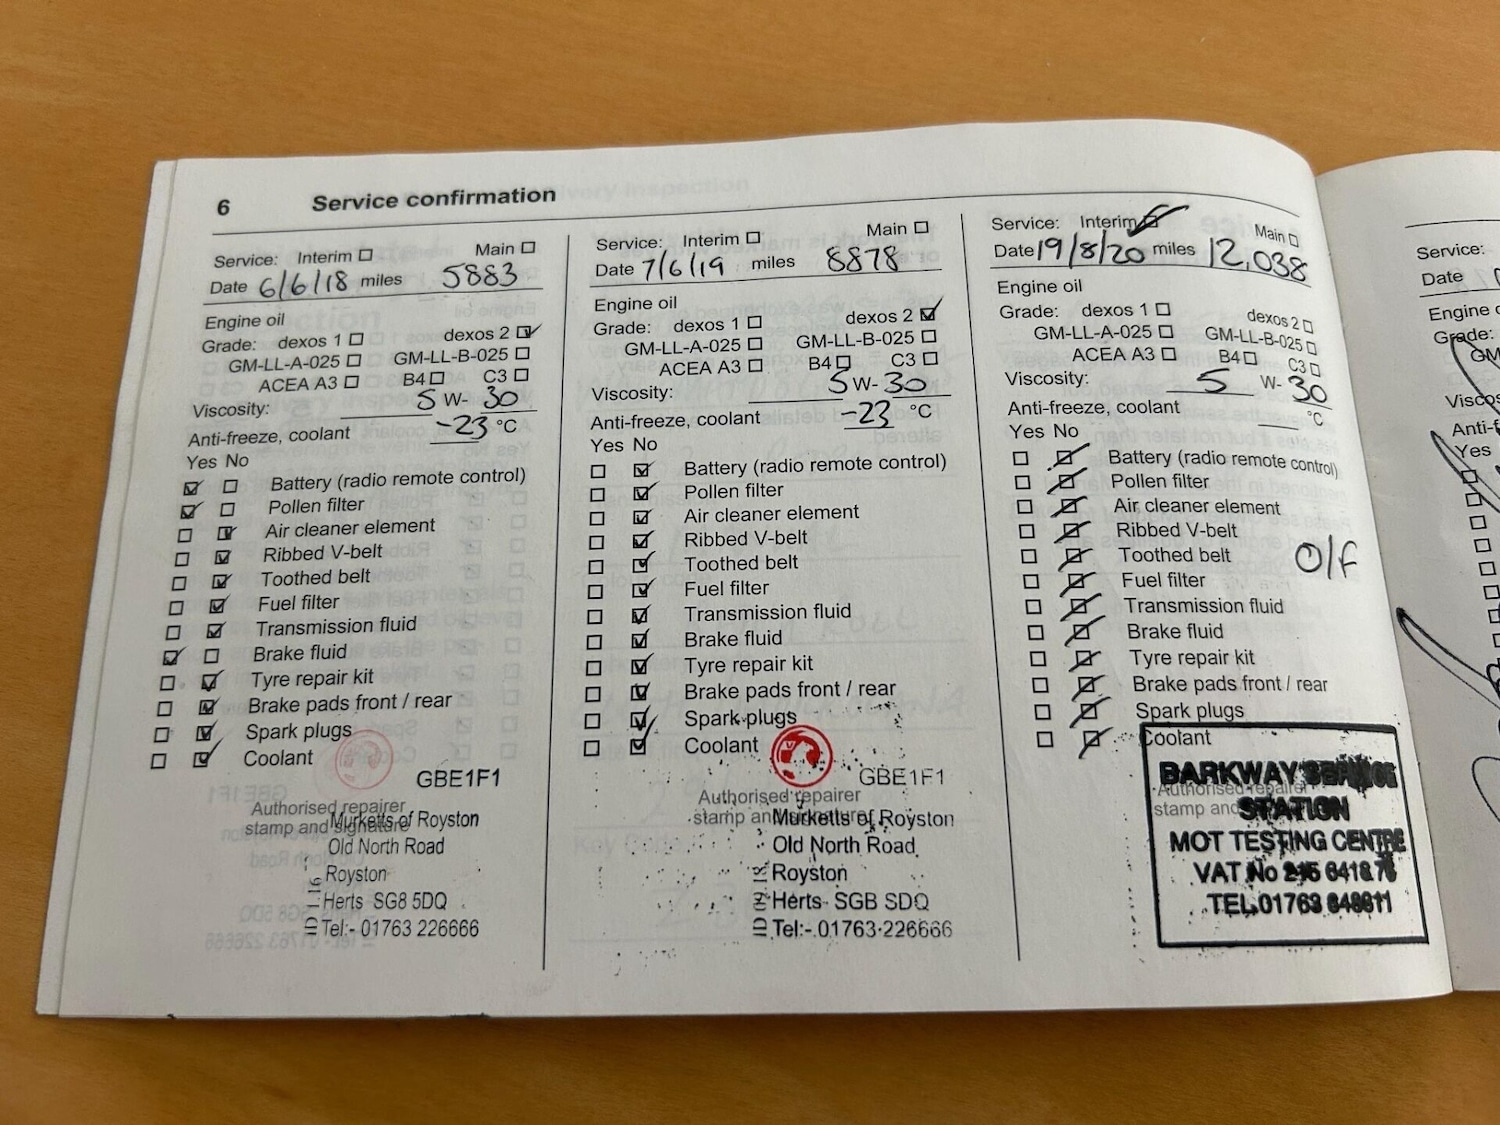 6 Service confirmation
Service: Interim Main
Date 6/6/18 miles 5883
Engine oil
Grade: dexos 1 dexos 2
GM-LL-A-025 GM-LL-B-025
ACEA A3 B4 C3
Viscosity: 5 W- 30
Anti-freeze, coolant -23 °C
Yes No
Battery (radio remote control)
Pollen filter
Air cleaner element
Ribbed V-belt
Toothed belt
Fuel filter
Transmission fluid
Brake fluid
Tyre repair kit
Brake pads front / rear
Spark plugs
Coolant
GBE1F1
Authorised repairer
stamp and signature
Murketts of Royston
Old North Road
Royston
Herts SG8 5DQ
Tel:- 01763 226666
Service: Interim Main
Date 7/6/19 miles 8878
Engine oil
Grade: dexos 1 dexos 2
GM-LL-A-025 GM-LL-B-025
ACEA A3 B4 C3
Viscosity: 5 W- 30
Anti-freeze, coolant -23 °C
Yes No
Battery (radio remote control)
Pollen filter
Air cleaner element
Ribbed V-belt
Toothed belt
Fuel filter
Transmission fluid
Brake fluid
Tyre repair kit
Brake pads front / rear
Spark plugs
Coolant
GBE1F1
Authorised repairer
stamp and signature
Murketts of Royston
Old North Road
Royston
Herts SG8 5DQ
Tel:- 01763 226666
Service: Interim Main
Date 19/8/20 miles 12,038
Engine oil
Grade: dexos 1 dexos 2
GM-LL-A-025 GM-LL-B-025
ACEA A3 B4 C3
Viscosity: 5 W- 30
Anti-freeze, coolant °C
Yes No
Battery (radio remote control)
Pollen filter
Air cleaner element
Ribbed V-belt
Toothed belt O/F
Fuel filter
Transmission fluid
Brake fluid
Tyre repair kit
Brake pads front / rear
Spark plugs
Coolant
Authorised repairer
stamp and
BARKWAY SERVICE
STATION
MOT TESTING CENTRE
VAT No
TEL.01763
Service:
Date
Engine
Grade:
GM
Yes